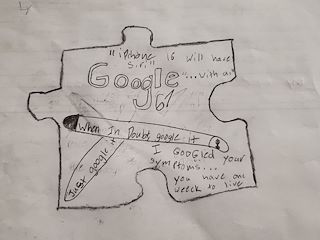 "iphone 16 will have
Siri"
"...with ai
Google
When In Doubt, google it
Just google it
I GOOGled your
symptoms...
you have one
week to live